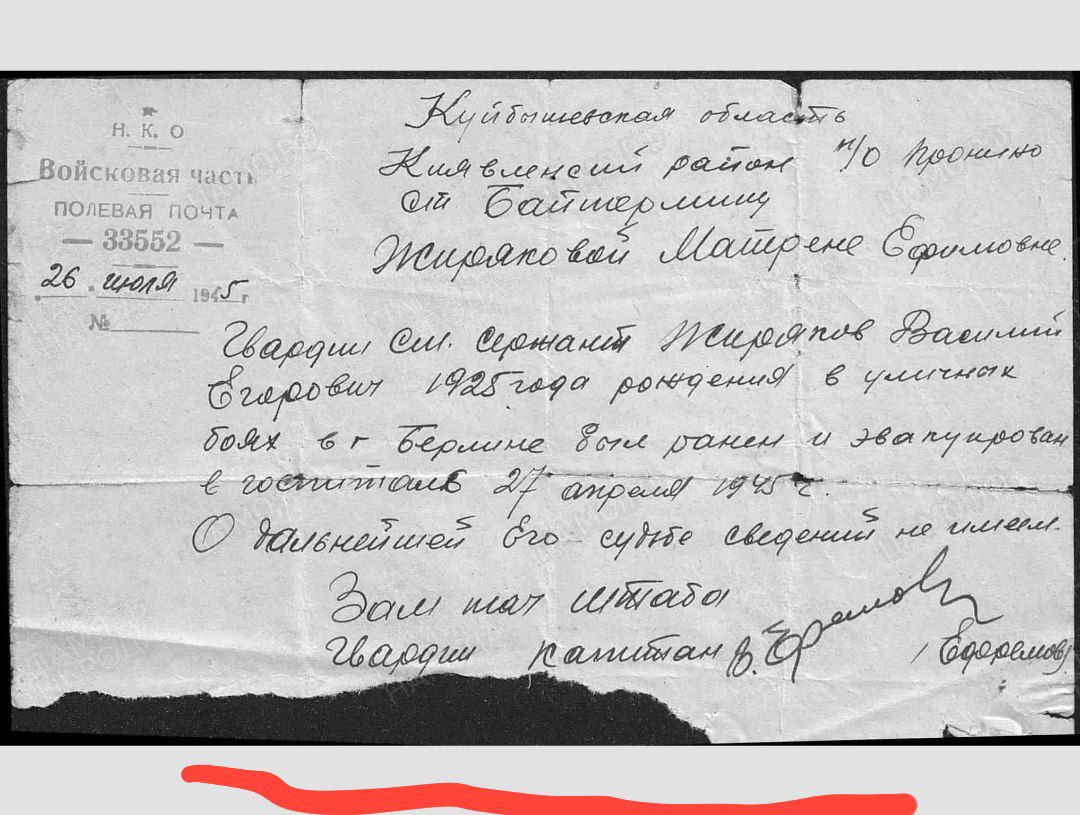 Н. К. О
Войсковая часть
ПОЛЕВАЯ ПОЧТА
— 33552 —
26 . июля 1945 г
№
Куйбышевская область
Киявленсий район п/о Пронино
ст Байтермину
Жиряковой Матрене Ефимовне.
Гвардии см. сержант Жиряков Василий
Егорович 1925 года рождения в уличных
боях в г Берлине был ранен и эвакуирован
в госпиталь 27 апреля 1945 г.
О дальнейшей Его судьбе сведений не имеем.
Зам нач штаба
Гвардии капитан
/ Ефремов/